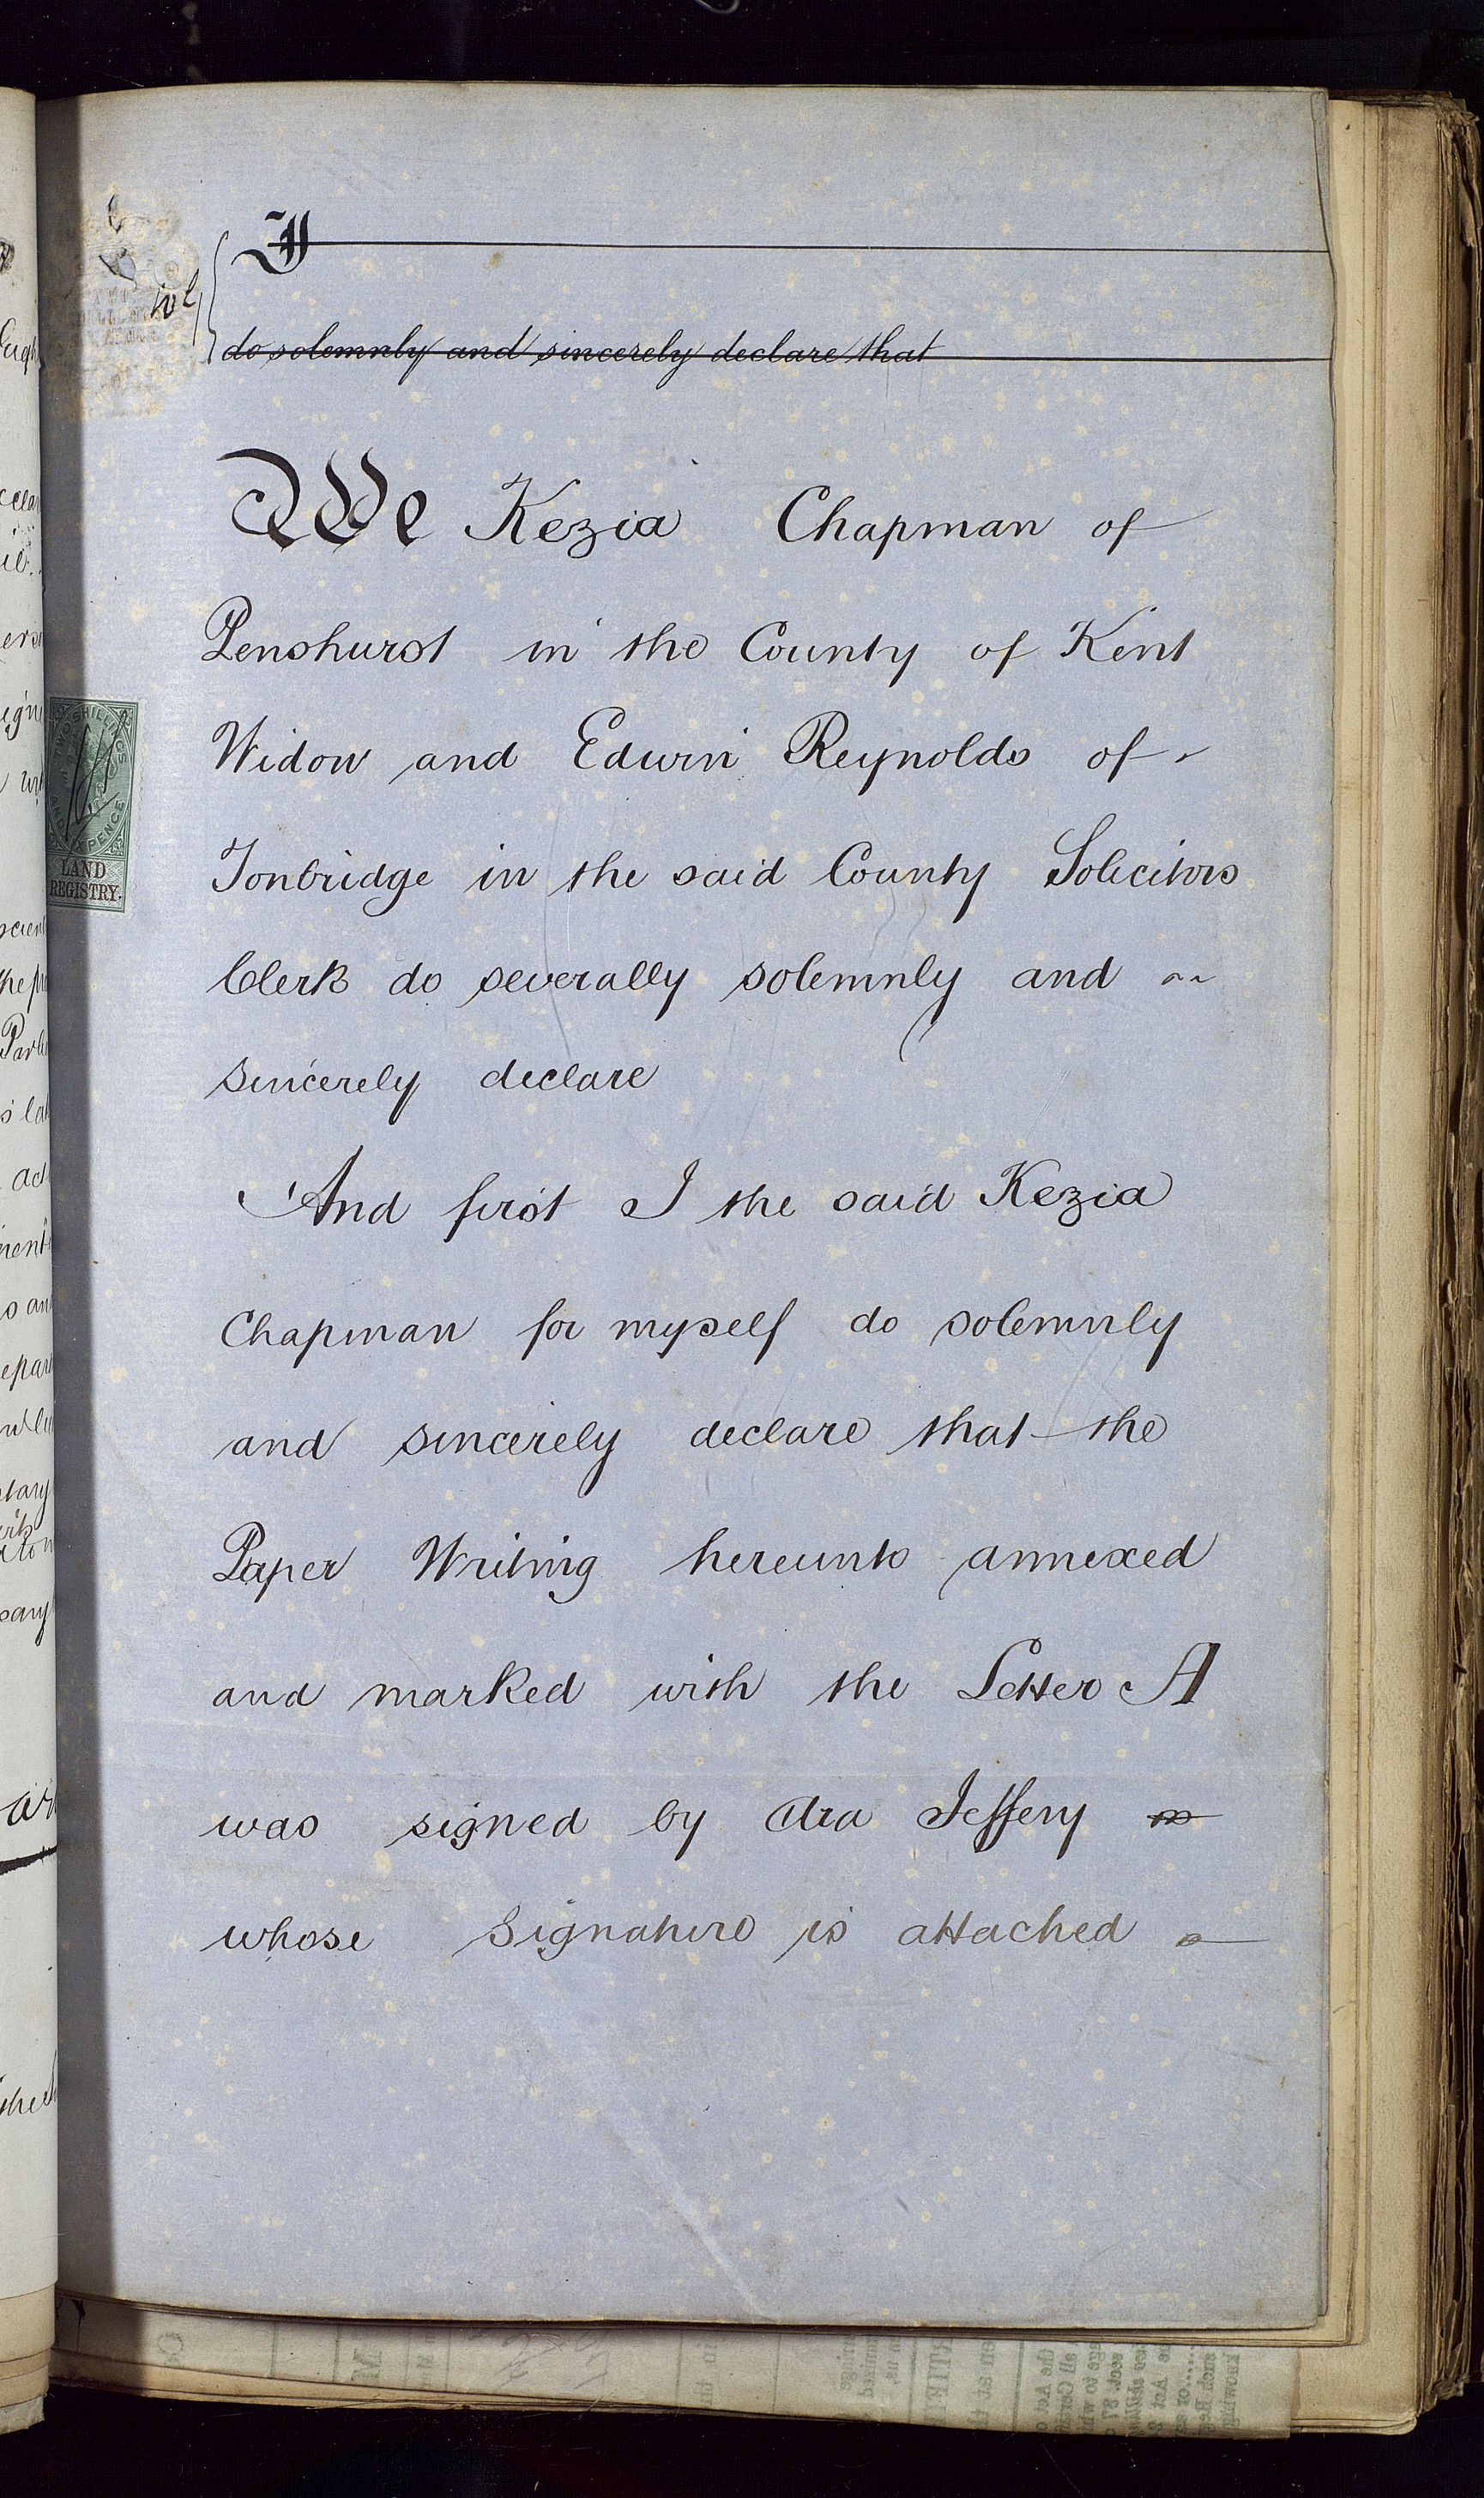 I
do solemnly and sincerely declare that
We Kezia Chapman of
Penshurst in the County of Kent
Widow and Edwin Reynolds of
Tonbridge in the said County Solicitors
Clerk do severally solemnly and
sincerely declare
And first I the said Kezia
Chapman for myself do solemnly
and sincerely declare that the
Paper Writing hereunto annexed
and marked with the Letter A
was signed by Asa Jeffery
whose signature is attached
TWO SHILLINGS
AND SIXPENCE
LAND
REGISTRY.